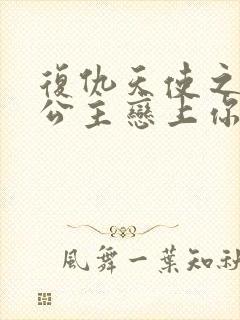 復仇天使之
公主戀上你
風舞一葉知秋